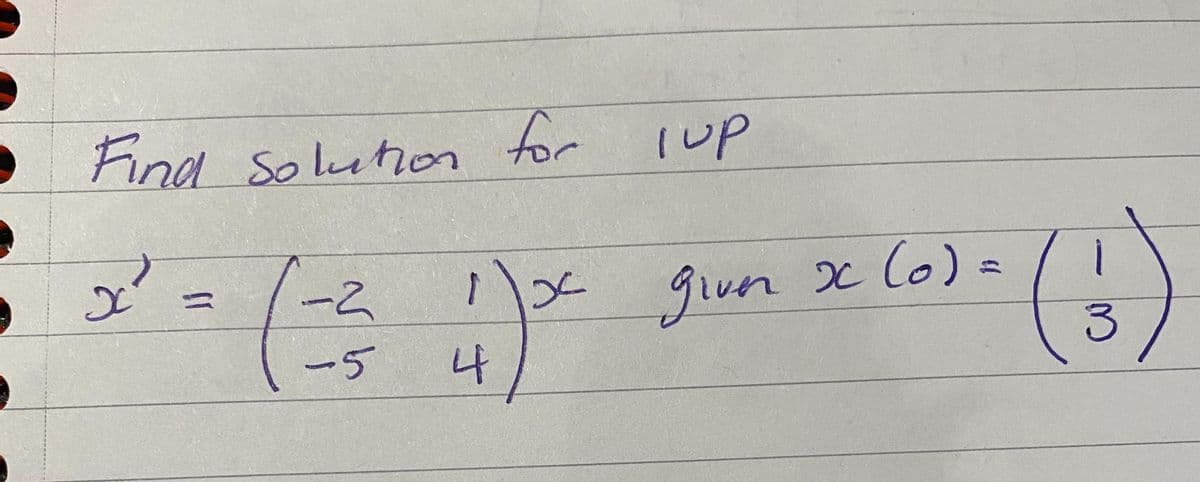 Find solution for IVP
x' = (-2 1) x given x(0) = (1)
(-5 4) (3)